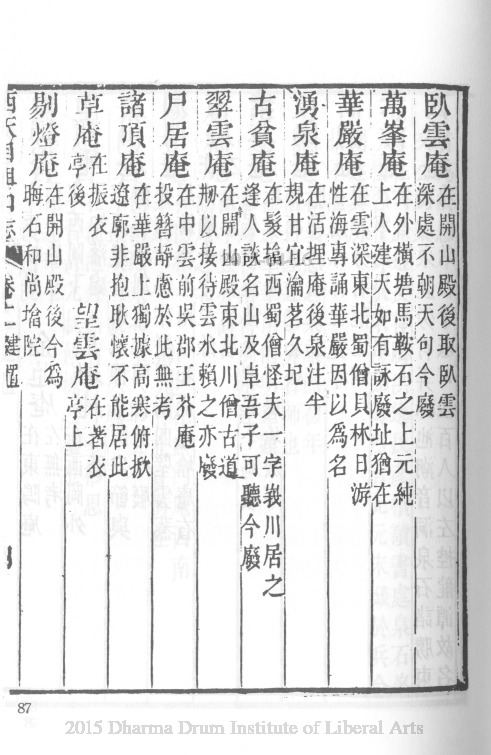 臥雲庵 在開山殿後取臥雲
深處不朝天句今廢
萬峯庵 在外橫塘馬鞍石之上元純
上人建天如有詠廢址猶在
華嚴庵 在雲深東北蜀僧具林日游
性海專誦華嚴因以爲名
湧泉庵 在活埋庵後泉注半
規甘宜瀹茗久圮
古貧庵 在髮塔西蜀僧怪夫一字峩川居之
逢人談名山及卓吾子可聽今廢
翠雲庵 在開山殿東北川僧古道
剏以接待雲水賴之亦廢
尸居庵 在中雲前吳郡王芥庵
投簪靜慮於此無考
諸頂庵 在華嚴上獨據高寒俯掀
遼廓非抱耿懷不能居此
草庵 在振衣
亭後
望雲庵 在著衣
亭上
剔燈庵 在開山殿後今爲
晦石和尚墖院
卷十一
87
2015 Dharma Drum Institute of Liberal Arts